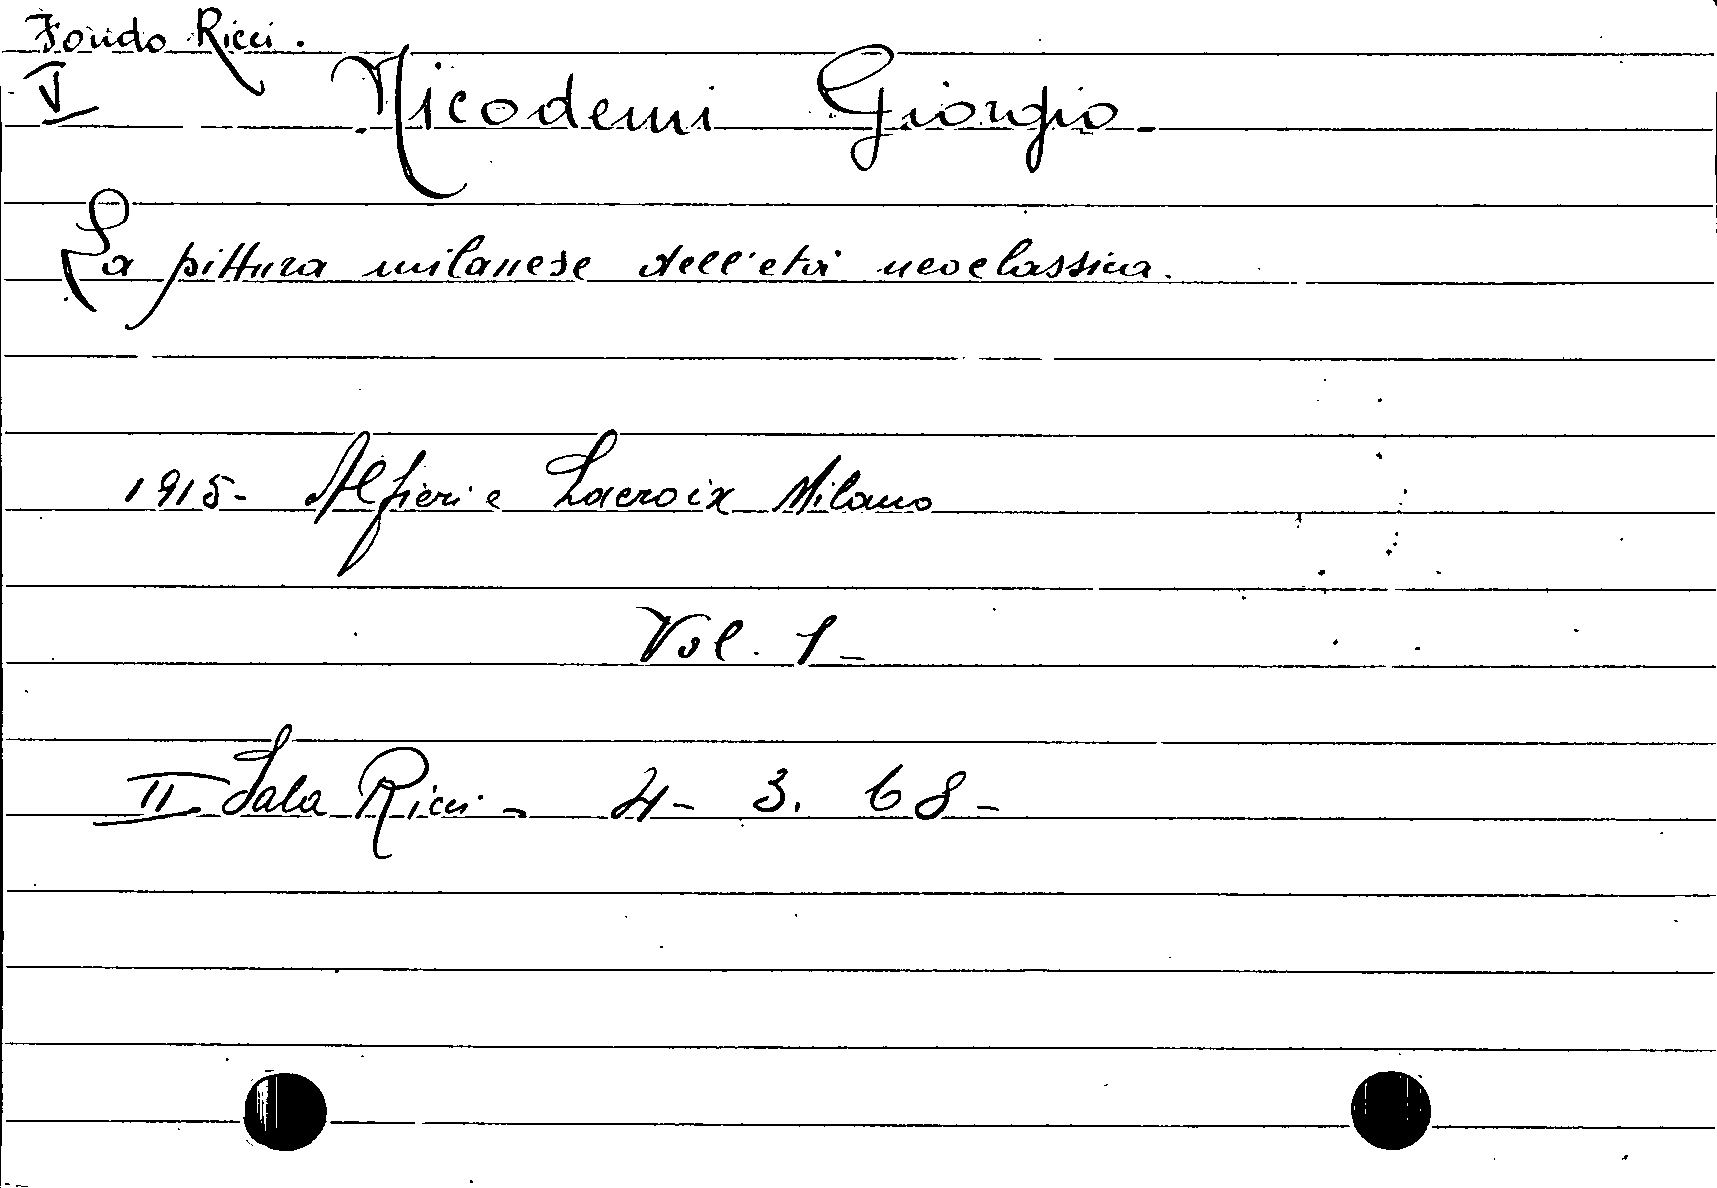 Fondo Ricci.
V Nicodemi Giorgio.
La pittura milanese dell'età neoclassica.
1915- Alfieri e Lacroix Milano
Vol. 1-
II Sala Ricci- 4- 3. 68-